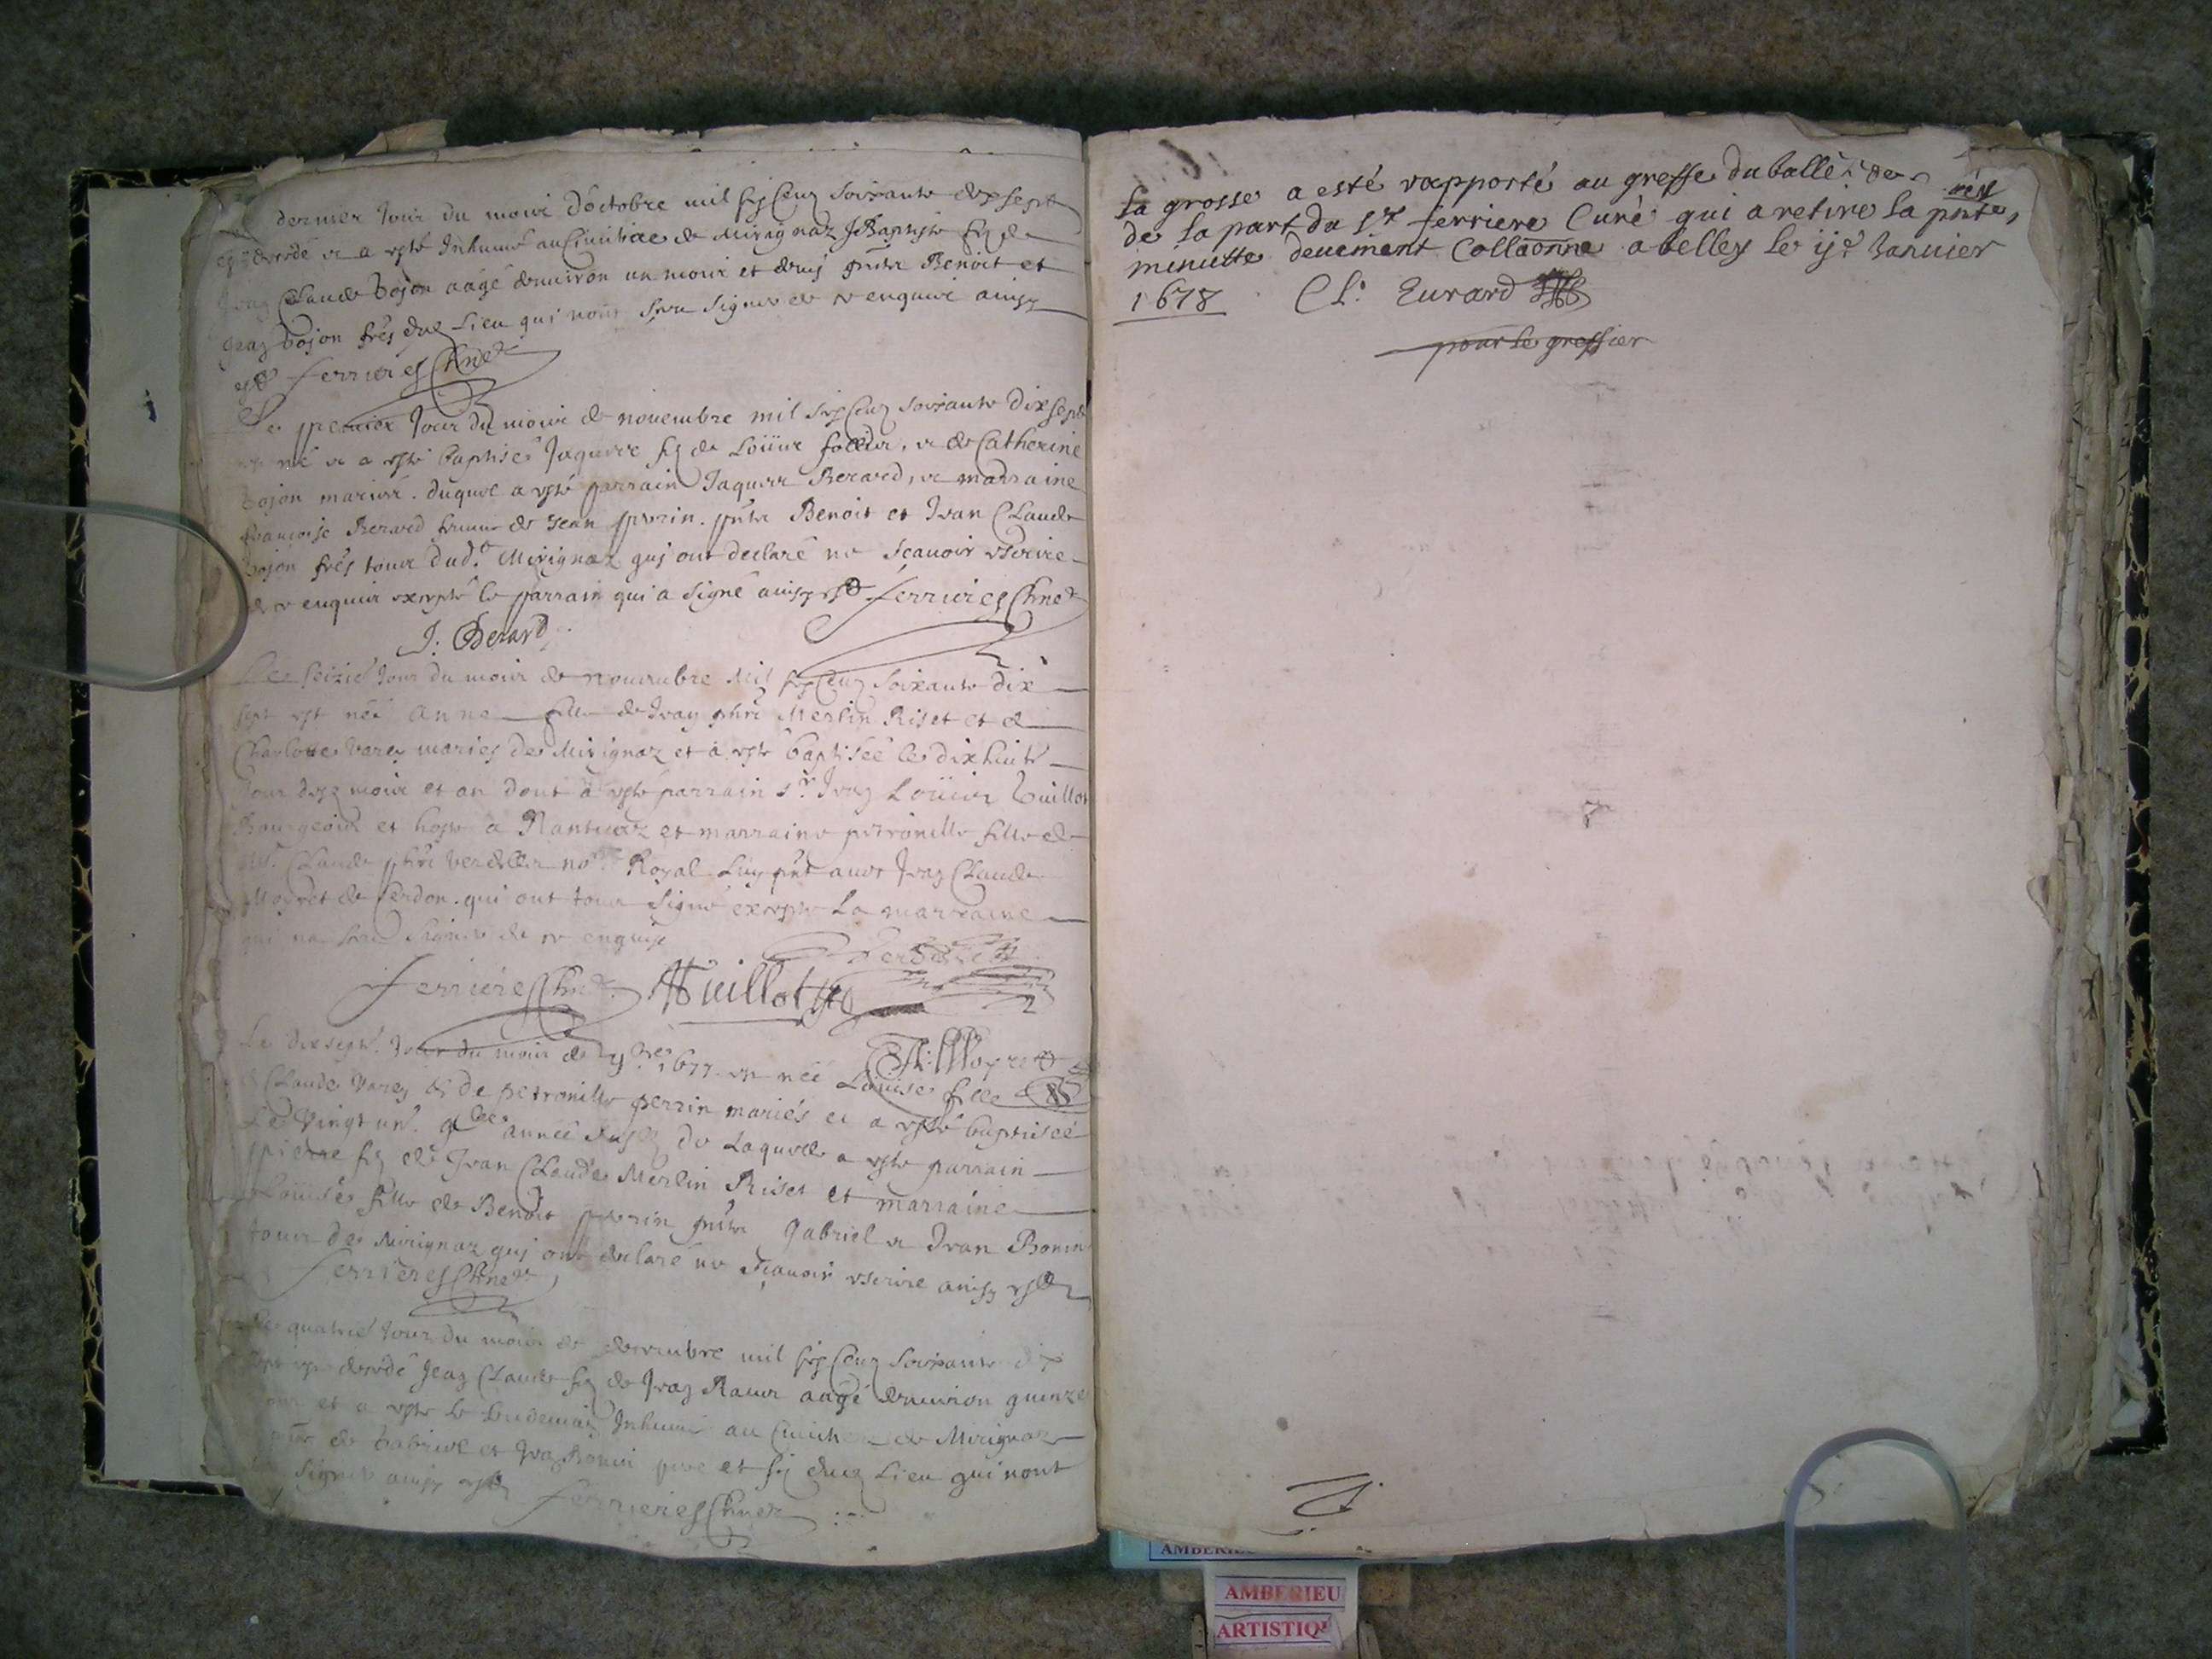 dernier Jour du mois d'octobre mil six Cens soixante dix sept
est decedé et a esté Inhumé au Cimitiere de Mirignaz J Baptiste fils de
Jean Claude bojon aagé denuiron un mois et demj pñts Benoit et
Jean bojon frés dud Lieu qui nont sceu signer de ce enquis ainsy
est ferrieres Curé
Le premier Jour du mois de nouembre mil six Cens soixante dix sept
est né et a esté baptisé Jaques fils de Loüis et de Catherine
bojon mariés. duquel a esté parrain Jaques Berard, et marraine
francoise Berard femme de Jean perrin. pñts Benoit et Jean Claude
bojon frés tous dud. Mirignaz qui ont declaré ne scauoir escrire
de ce enquis excepté le parrain qui a signé ainsy est ferrieres
J. Berard
Le seizié Jour du mois de nouembre Mil six Cens soixante dix
sept est néé anne fille de Jean phñ Merlin Riset et de
Charlote Varey mariés de Mirignaz et a esté baptiséé le dix huité
Jour desd mois et an dont a esté parrain sr. Jean Loüis Vuillot
Bourgeois et hoste a Nantuaz et marraine petronille fille de
Me. Claude phñ Royal Luy pñt auec Jean Claude
Moyret de Cerdon. qui ont tous signé excepté La marraine
qui na sceu signer de ce enquise
ferrieres Vuillot
Moyret
Le dix sept. Jour du mois de 9bre 1677 est néé Louise fille
de Claude Varey & de petronille perrin mariés et a esté baptiséé
Le Vingt un. 9bre année susd de Laquelle a esté parrain
pierre fils de Jean Claude Merlin Riset et marraine
Loüise fille de Benoit perrin pñts Gabriel et Jean Bonin
tous de Mirignaz qui ont declaré ne scauoir escrire ainsy est
ferrieres
Le quatrié Jour du mois de decembre mil six Cens soixante dix
sept est decedé Jean Claude fils de Jean Raux aagé denuiron quinze
ans et a esté le lendemain Inhumé au Cimitiere de Mirignaz
pñts de Gabriel et Jean Bonin pere et fils dud Lieu qui nont
signer ainsy est ferrieres
La grosse a esté rapporté au greffe du balle. de
de la part du Sr ferriere Curé qui a retire la pñte
minutte deuement Collaonné a belley le ije Januier
1678 Cl. Eurard
pour le greffier
AMBERIEU
AMBERIEU
ARTISTIQ